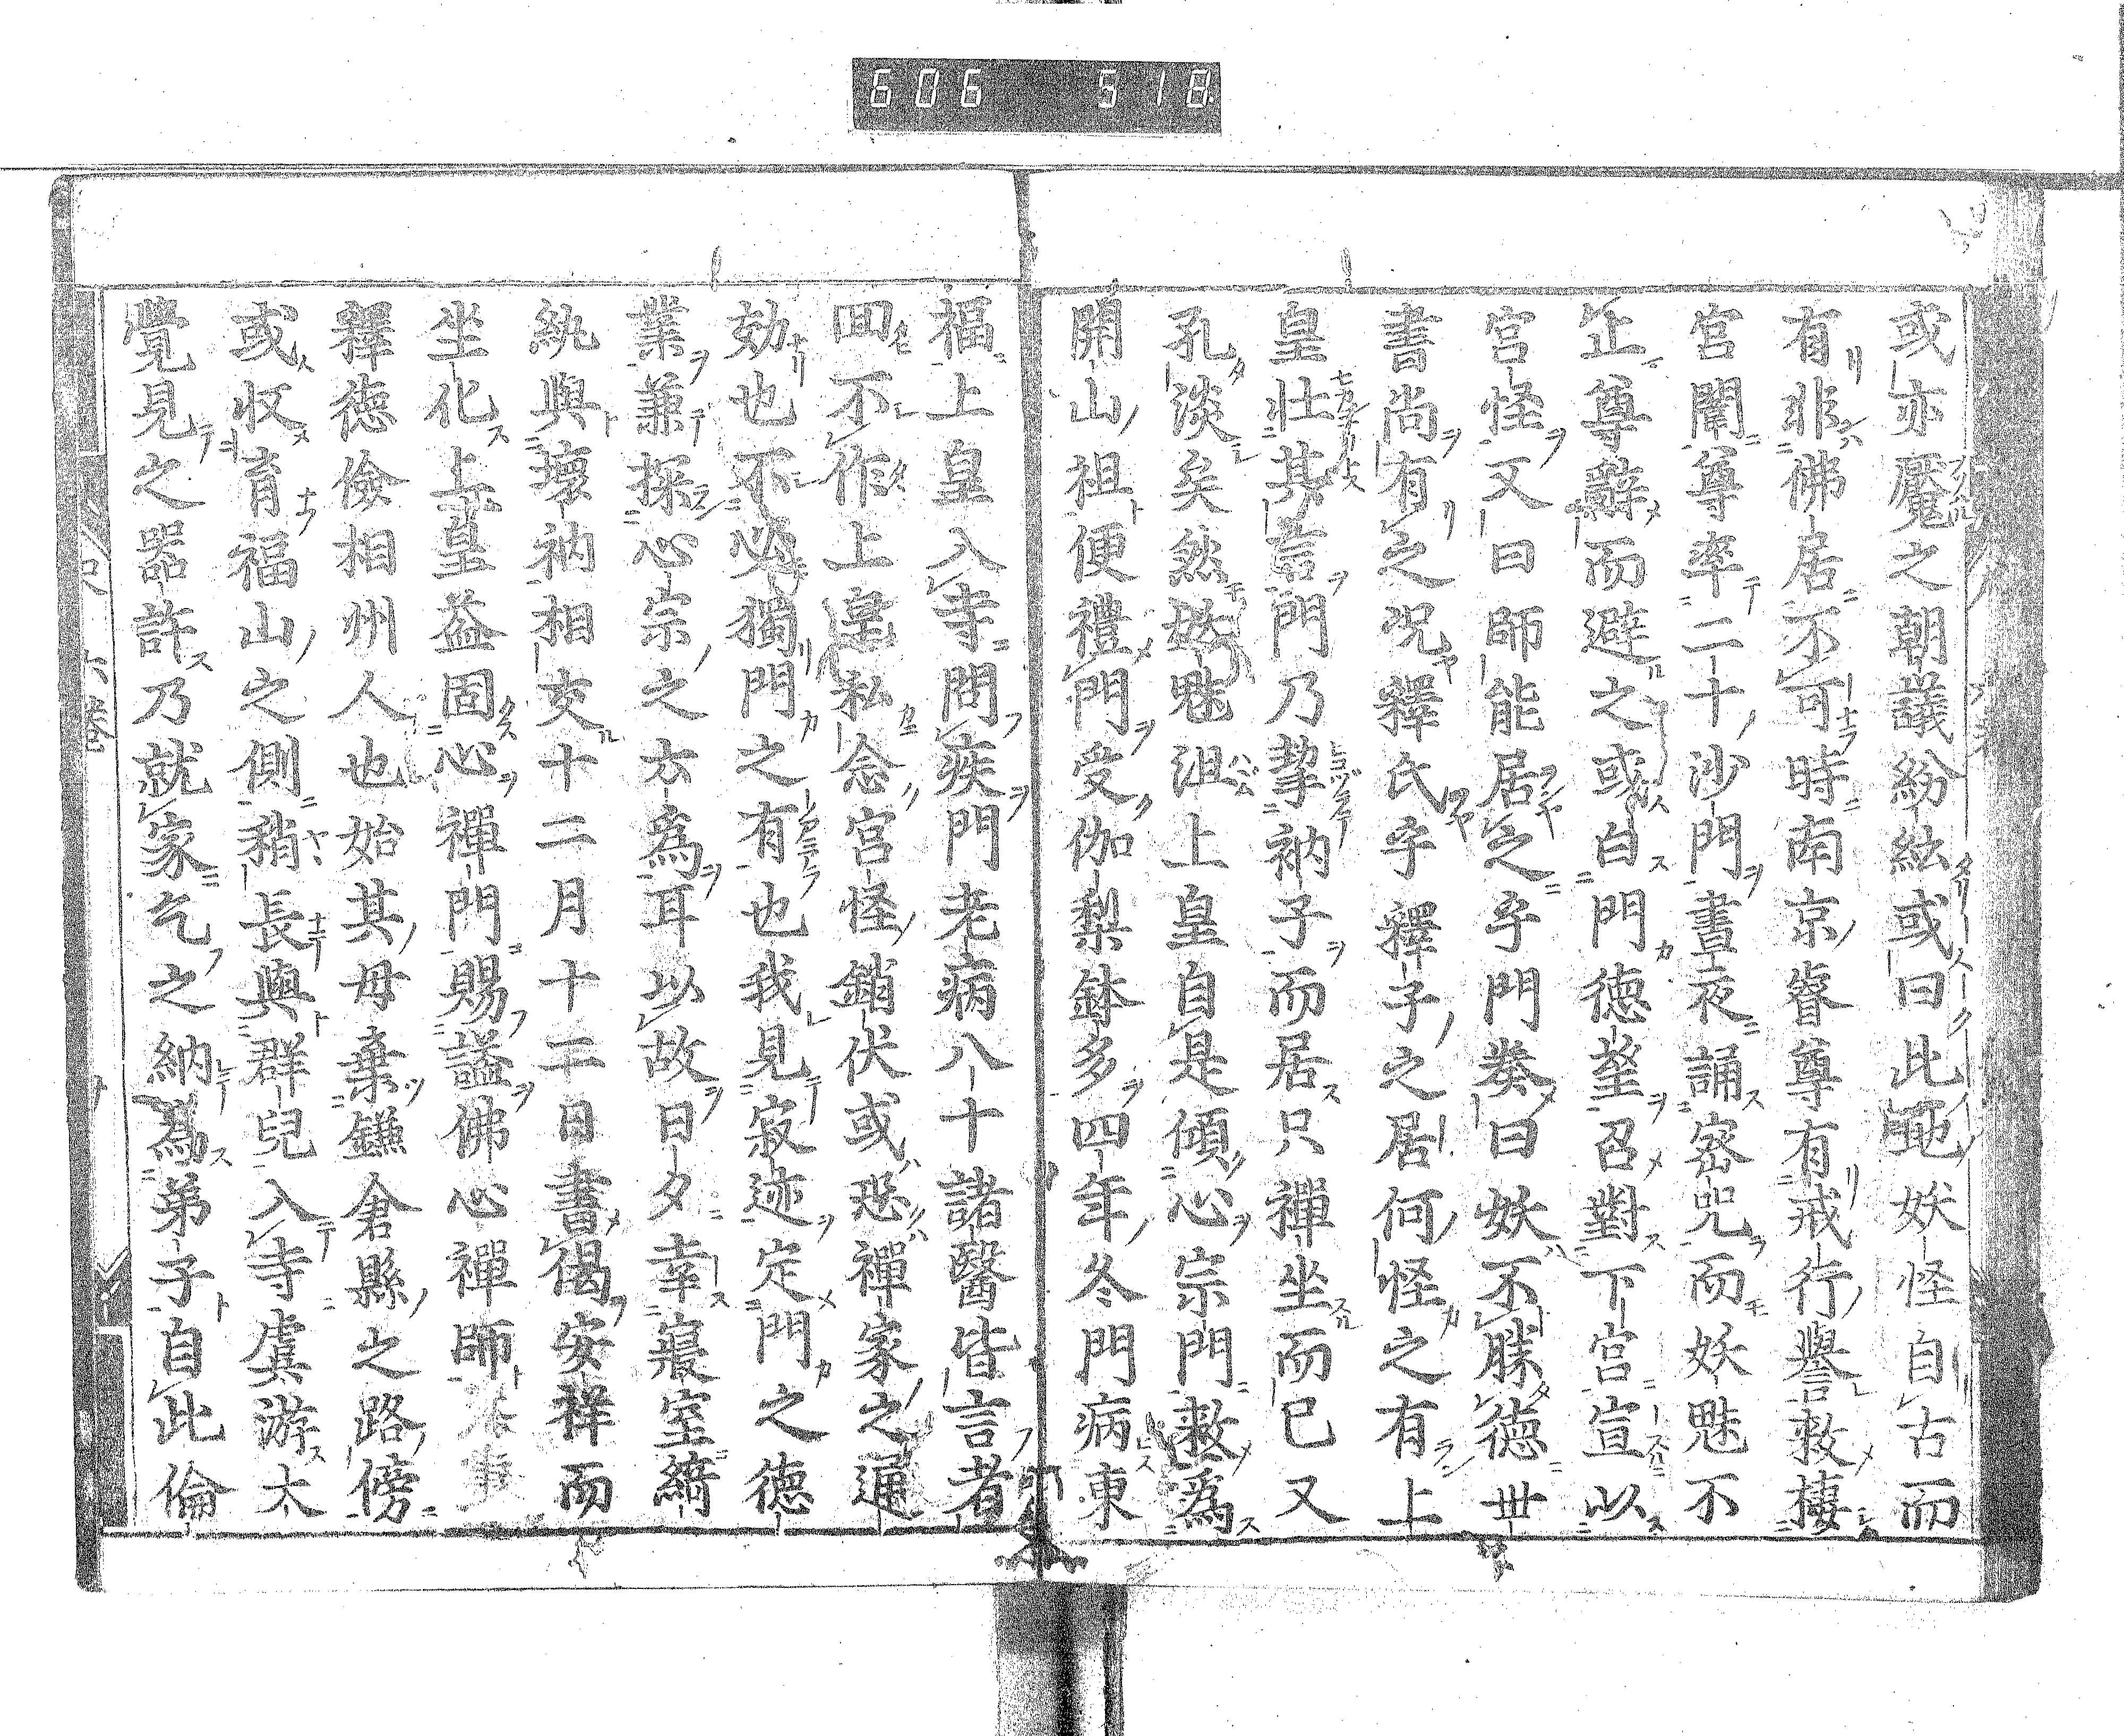 606 518
或亦魘之朝議紛紜或曰此地妖怪自古而
有非佛居不可時南京睿尊有戒行譽救捿
宮闈尊率二十沙門晝夜誦密咒而妖魅不
止尊辭而避之或白門德望召對下宮宣以
宮怪又曰師能居之乎門奏曰妖不勝德世
書尚有之况釋氏乎釋子之居何怪之有上
皇壯其言門乃挈衲子而居只禪坐而已又
孔淡矣然妖魅沮上皇自是傾心宗門救爲
開山祖便禮門受伽梨鉢多四年冬門病東
福上皇入寺問疾門老病八十諸醫皆言者
回不作上皇私念宮怪銷伏或恐禪家之通
効也不必獨門之有也我見寂迹定門之德
業兼探心宗之大爲耳以故日夕幸寢室綺
紈與壞衲相交十二月十二日書偈安祥而
坐化上皇益固心禪門賜謚佛心禪師
釋德儉相州人也始其母棄鎌倉縣之路傍
或收育福山之側稍長與群兒入寺虞游太
覺見之器許乃就家乞之納爲弟子自此倫
六卷